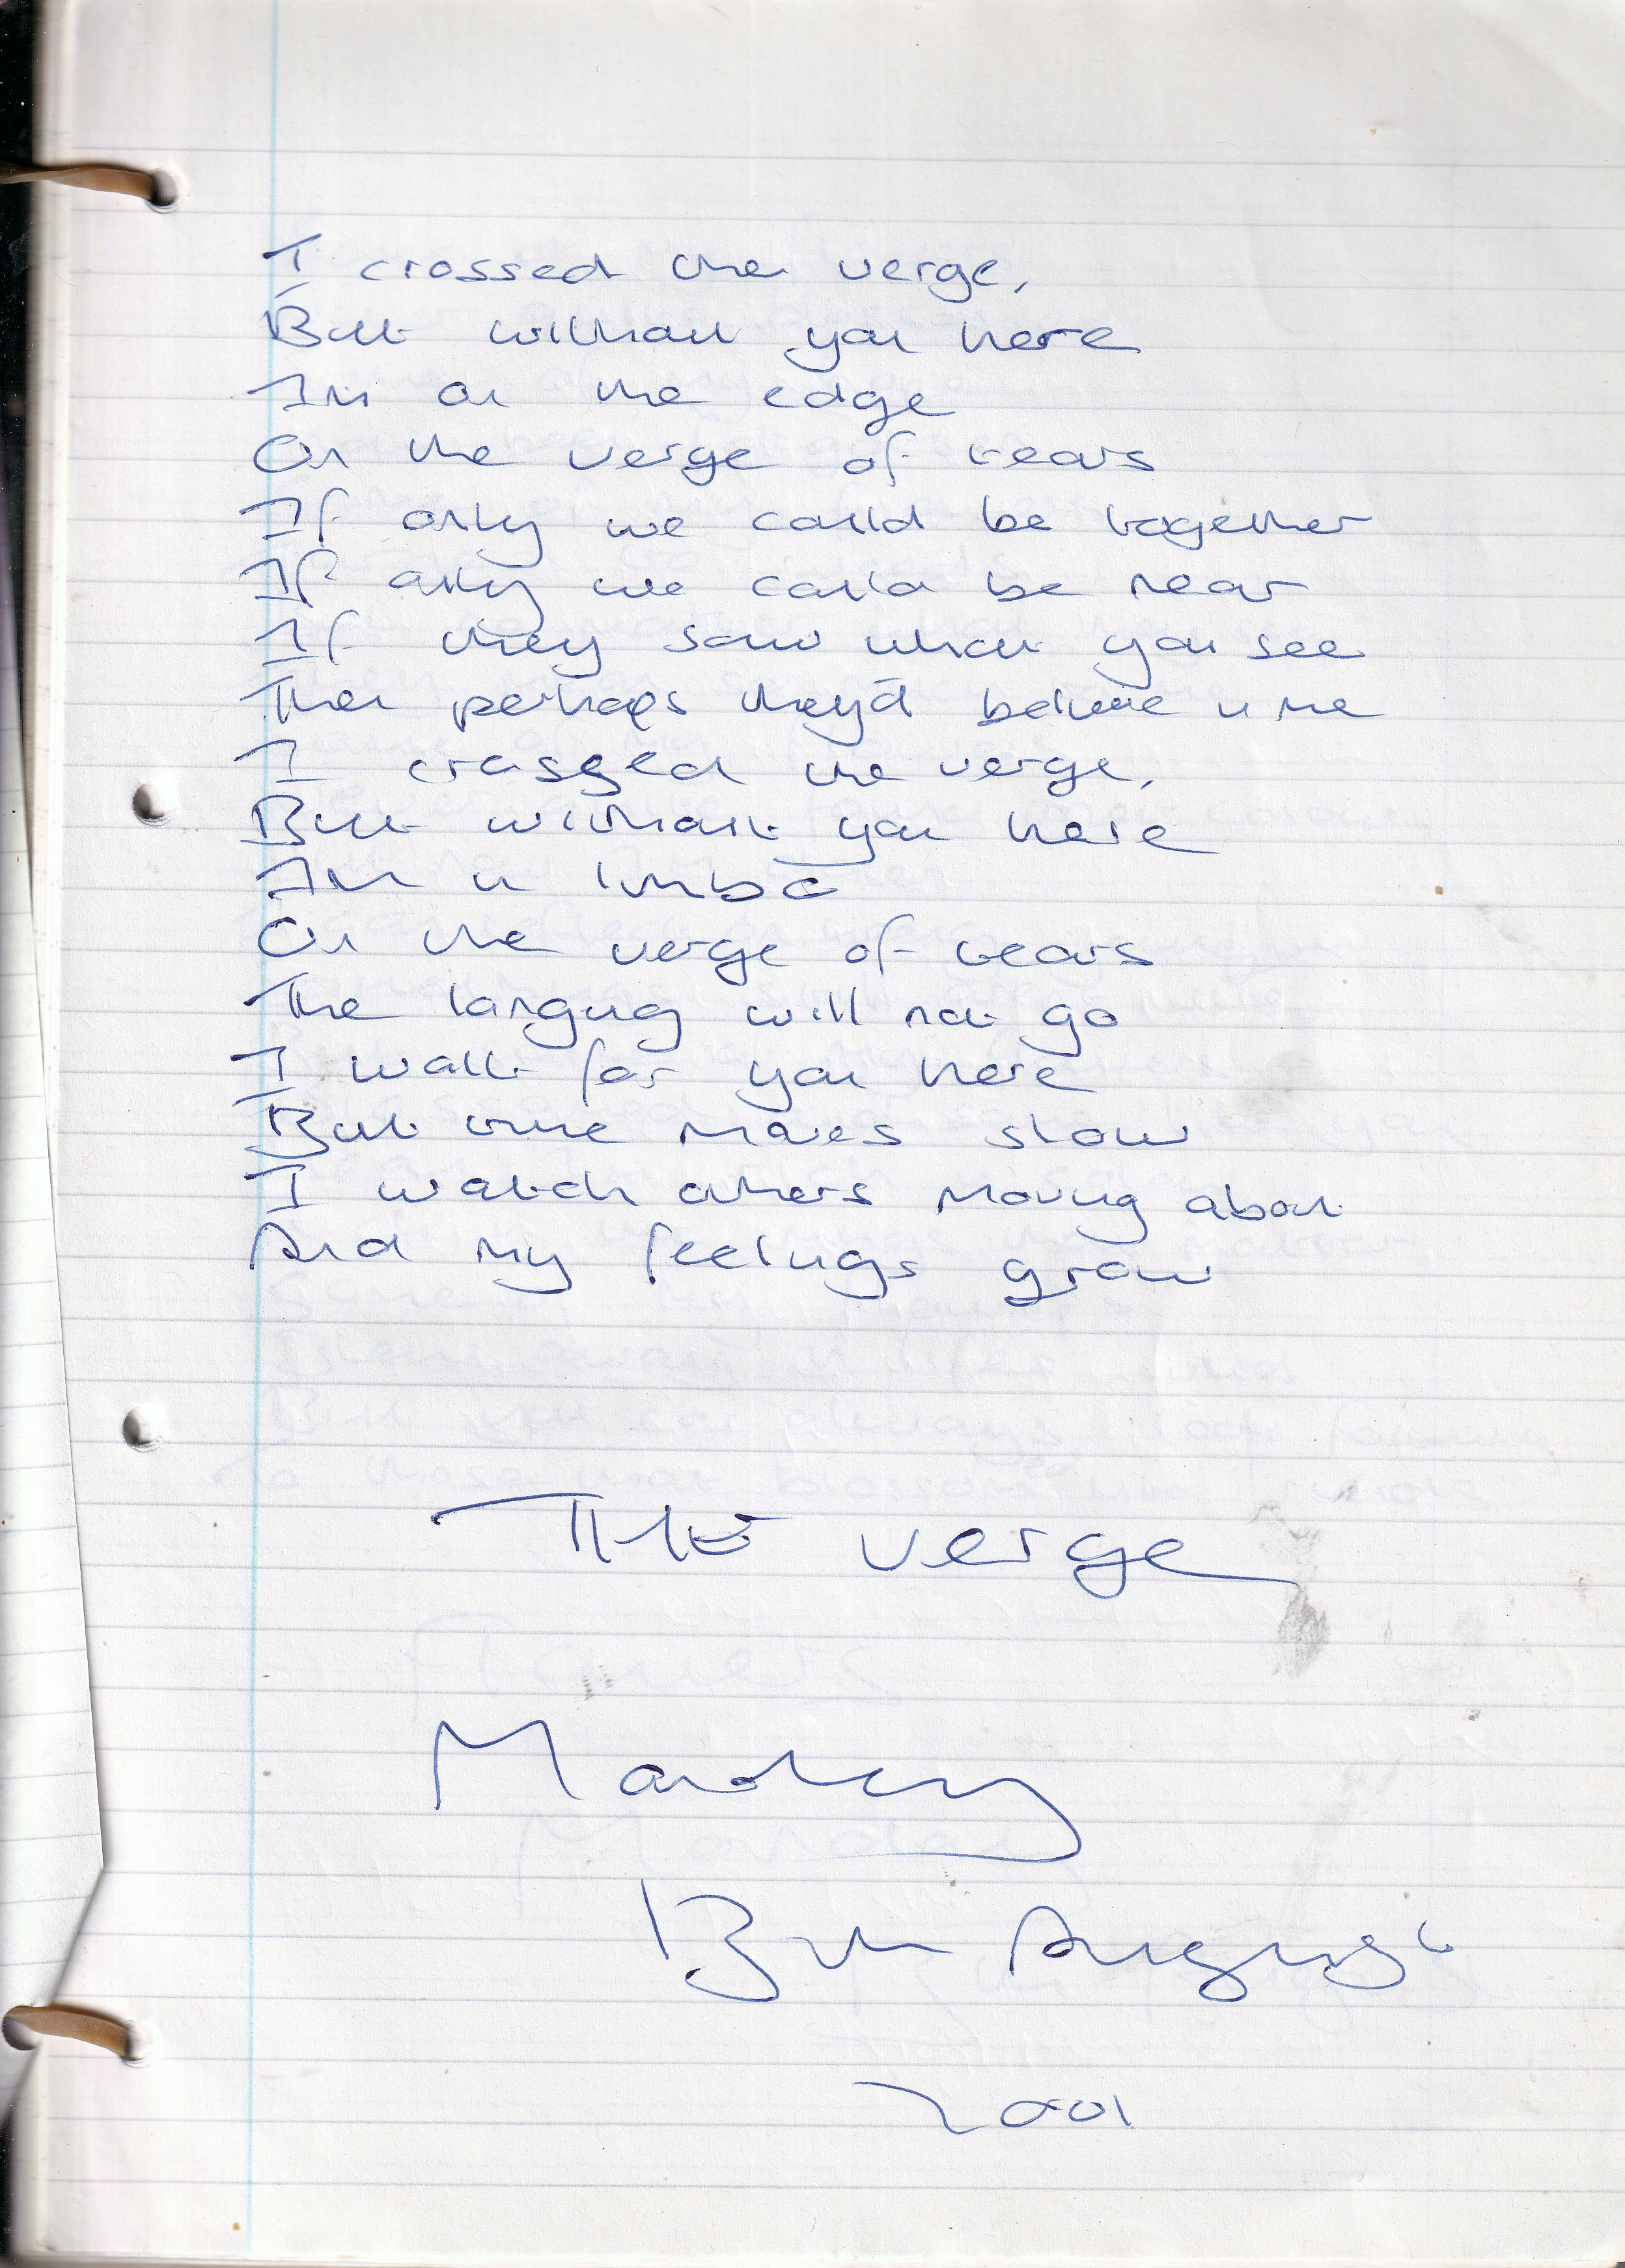 I crossed the verge,
But without you here
Im on the edge
On the verge of tears
If only we could be together
If only we could be near
If they saw what you see
Then perhaps they'd believe in me
I crossed the verge,
But without you here
Im in limbo
On the verge of tears
The longing will not go
I wait for you here
But time moves slow
I watch others moving about
And my feelings grow
THE verge
Monday
13th August
2001